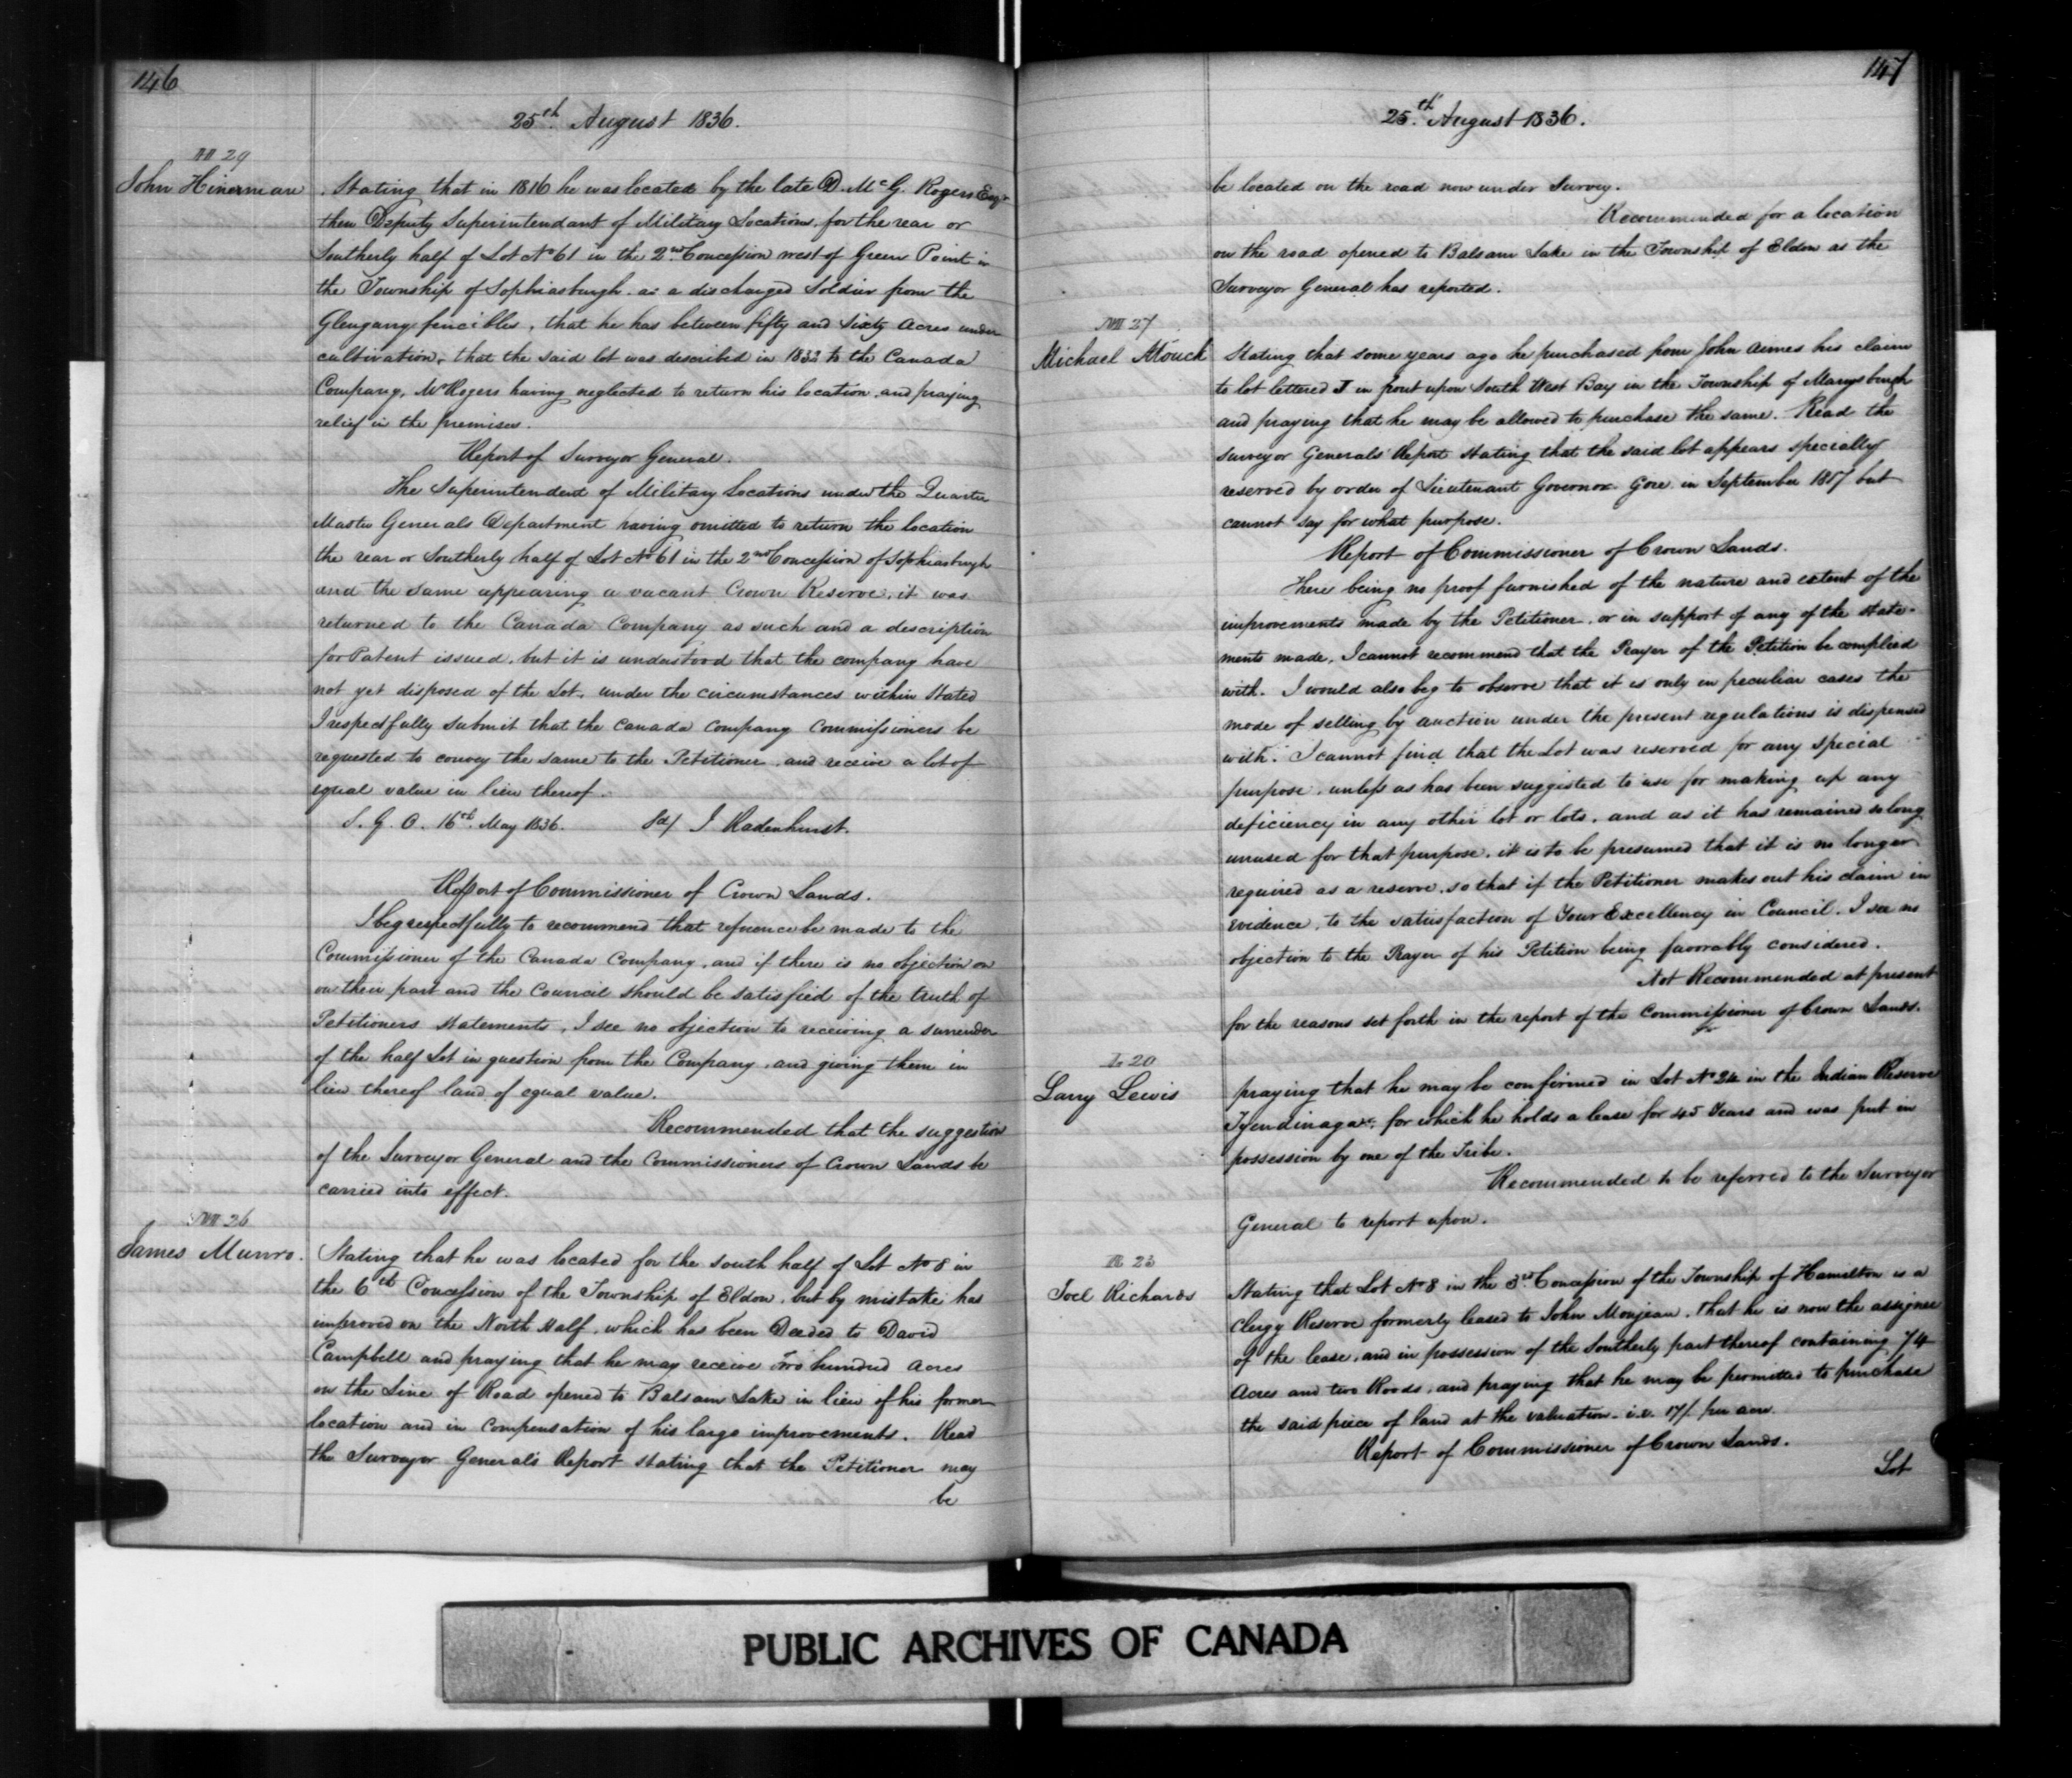 146
25th August 1836.
29
John Hinerman
Stating that in 1816 he was located by the late D. McG. Rogers Esqr
then Deputy Superintendant of Military Locations, for the rear or
Southerly half of Lot No 61 in the 2nd Concession west of Green Point in
the Township of Sophiasburgh as a discharged Soldier from the
Glengary fencibles, that he has between fifty and Sixty Acres under
cultivation, that the said lot was described in 1832 to the Canada
Company, Mr Rogers having neglected to return his location and praying
relief in the premises.
Report of Surveyor General.
The Superintendend of Military Locations under the Quarter
Master Generals Department having omitted to return the location
the rear or Southerly half of Lot No 61 in the 2nd Concession of Sophiasburgh
and the same appearing a vacant Crown Reserve, it was
returned to the Canada Company as such and a description
for Patent issued, but it is understood that the company have
not yet disposed of the Lot, under the circumstances within Stated
I respectfully submit that the Canada Company Commissioners be
requested to convey the same to the Petitioner and receive a lot of
equal value in lieu thereof.
S. G. O. 16th May 1836. Sd/ J Radenhurst.
Report of Commissioner of Crown Lands.
I beg respectfully to recommend that reference be made to the
Commissioner of the Canada Company, and if there is no objection on
on their part and the Council should be satisfied of the truth of
Petitioners statements, I see no objection to receiving a surrender
of the half Lot in question from the Company, and giving them in
lieu thereof land of equal value.
Recommended that the suggestion
of the Surveyor General and the Commissioners of Crown Lands be
carried into effect.
M 26
James Munro.
Stating that he was located for the south half of Lot No 8 in
the 6th Concession of the Township of Eldon, but by mistake has
improved on the North Half, which has been Deeded to David
Campbell and praying that he may receive Two hundred Acres
on the Line of Road opened to Balsam Lake in lieu of his former
location and in compensation of his large improvements. Read
the Surveyor General's Report stating that the Petitioner may
be
147
25th August 1836.
be located on the road now under Survey.
Recommended for a location
on the road opened to Balsam Lake in the Township of Eldon as the
Surveyor General has reported.
M 27
Michael Mouck
Stating that some years ago he purchased from John Aimes his claim
to lot lettered I in front upon South West Bay in the Township of Marysburgh
and praying that he may be allowed to purchase the same. Read the
Surveyor Generals Report stating that the said lot appears specially
reserved by order of Lieutenant Governor Gore in September 1807 but
cannot say for what purpose.
Report of Commissioner of Crown Lands.
There being no proof furnished of the nature and extent of the
improvements made by the Petitioner, or in support of any of the state-
ments made, I cannot recommend that the Prayer of the Petition be complied
with. I would also beg to observe that it is only in peculiar cases the
mode of selling by auction under the present regulations is dispensed
with. I cannot find that the Lot was reserved for any special
purpose, unless as has been suggested to use for making up any
deficiency in any other lot or lots, and as it has remained so long
unused for that purpose, it is to be presumed that it is no longer
required as a reserve, so that if the Petitioner makes out his claim in
evidence, to the satisfaction of Your Excellency in Council, I see no
objection to the Prayer of his Petition being favorably considered.
Not Recommended at present
for the reasons set forth in the report of the Commissioner of Crown Lands.
L 20
Larry Lewis
praying that he may be confirmed in Lot No 24 in the Indian Reserve
Tyendinaga, for which he holds a lease for 45 Years and was put in
possession by one of the Tribe.
Recommended to be referred to the Surveyor
General to report upon.
R 23
Joel Richards
Stating that Lot No 8 in the 3rd Concession of the Township of Hamilton is a
Clergy Reserve formerly leased to John Monjeau, that he is now the assignee
of the lease, and in possession of the Southerly part thereof containing 74
Acres and two Roods, and praying that he may be permitted to purchase
the said piece of land at the valuation. i.e. 17/ per acre
Report of Commissioner of Crown Lands.
Lot
PUBLIC ARCHIVES OF CANADA